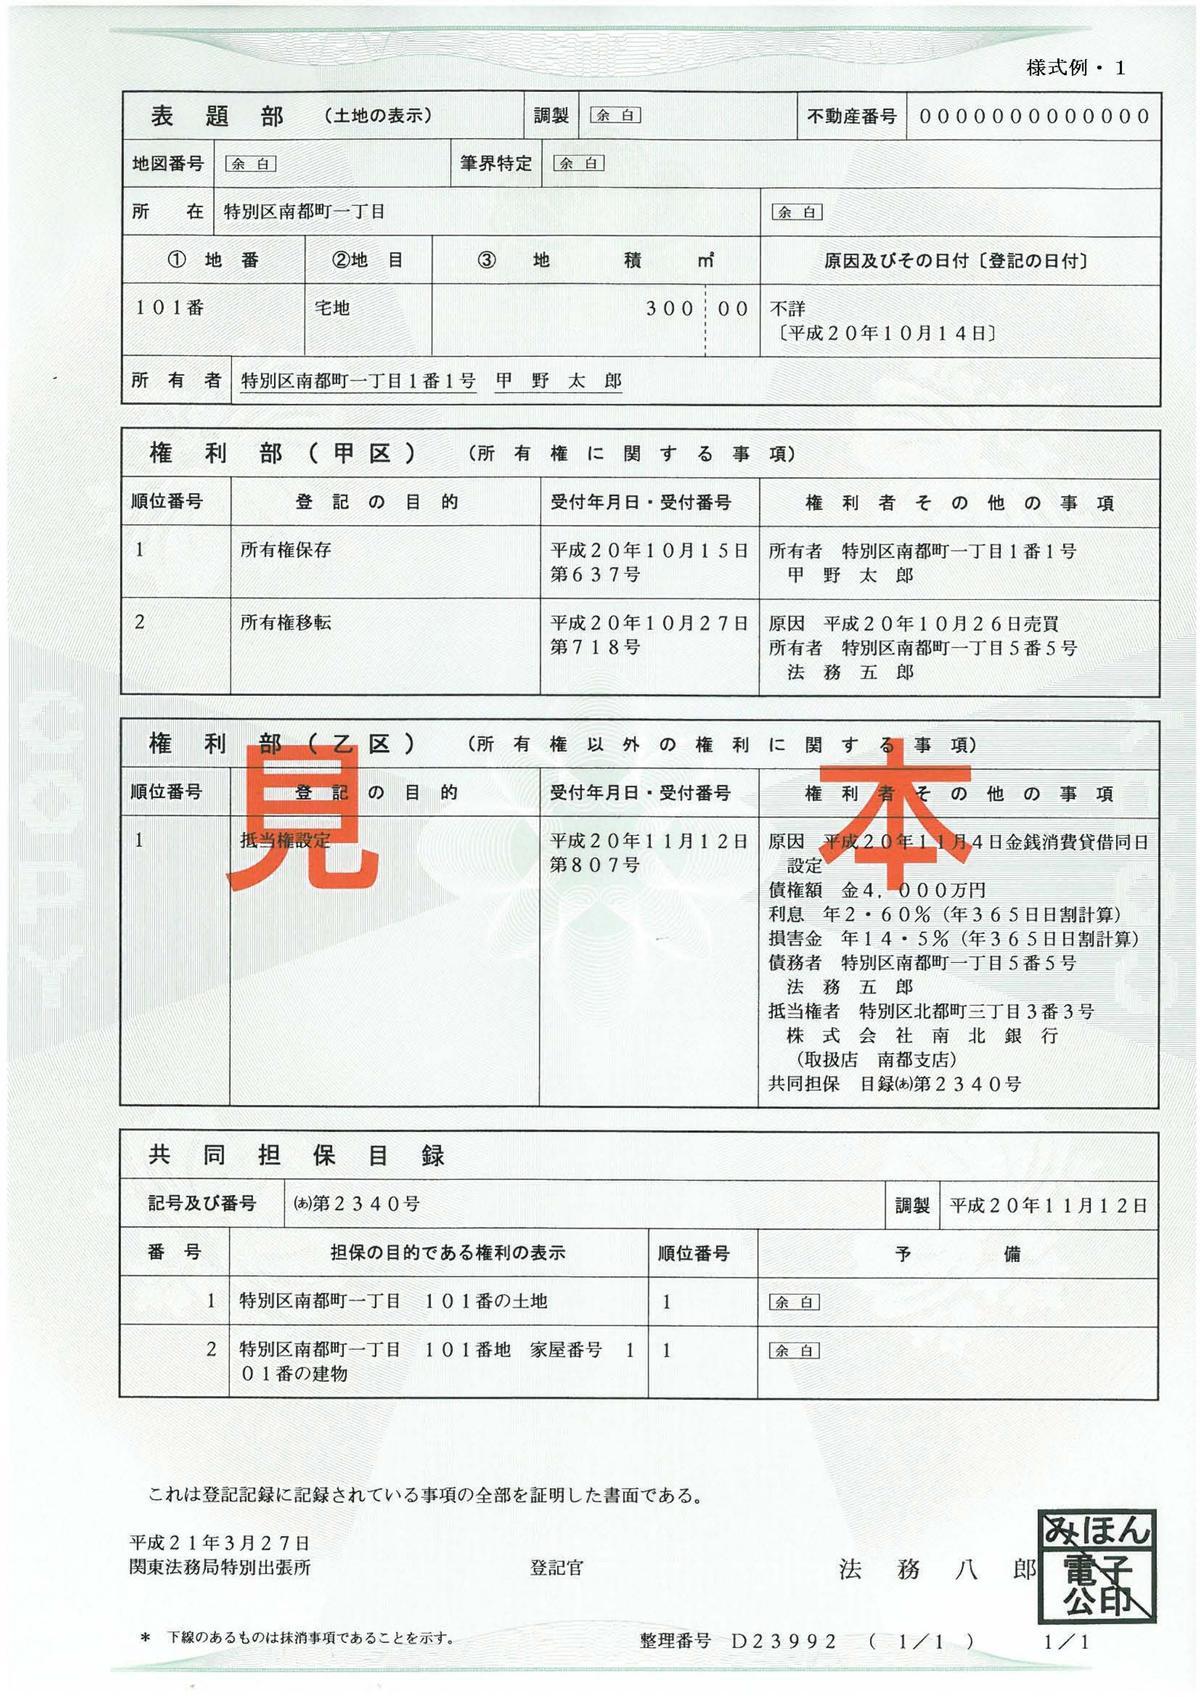 様式例・1
表題部 (土地の表示) 調製 余白 不動産番号 0000000000000
地図番号 余白 筆界特定 余白
所在 特別区南都町一丁目 余白
① 地番 ②地目 ③ 地積 ㎡ 原因及びその日付〔登記の日付〕
101番 宅地 300 00 不詳
〔平成20年10月14日〕
所有者 特別区南都町一丁目1番1号 甲野太郎
権利部(甲区) (所有権に関する事項)
順位番号 登記の目的 受付年月日・受付番号 権利者その他の事項
1 所有権保存 平成20年10月15日 所有者 特別区南都町一丁目1番1号
第637号 甲野太郎
2 所有権移転 平成20年10月27日 原因 平成20年10月26日売買
第718号 所有者 特別区南都町一丁目5番5号
法務五郎
権利部(乙区) (所有権以外の権利に関する事項)
見本
順位番号 登記の目的 受付年月日・受付番号 権利者その他の事項
1 抵当権設定 平成20年11月12日 原因 平成20年11月4日金銭消費貸借同日
第807号 設定
債権額 金4,000万円
利息 年2・60%(年365日日割計算)
損害金 年14・5%(年365日日割計算)
債務者 特別区南都町一丁目5番5号
法務五郎
抵当権者 特別区北都町三丁目3番3号
株式会社南北銀行
(取扱店 南都支店)
共同担保 目録(あ)第2340号
共同担保目録
記号及び番号 (あ)第2340号 調製 平成20年11月12日
番号 担保の目的である権利の表示 順位番号 予備
1 特別区南都町一丁目 101番の土地 1 余白
2 特別区南都町一丁目 101番地 家屋番号 1 1 余白
01番の建物
これは登記記録に記録されている事項の全部を証明した書面である。
平成21年3月27日
関東法務局特別出張所 登記官 法務八郎
みほん
電子
公印
* 下線のあるものは抹消事項であることを示す。 整理番号 D23992 ( 1/1 ) 1/1
COPY